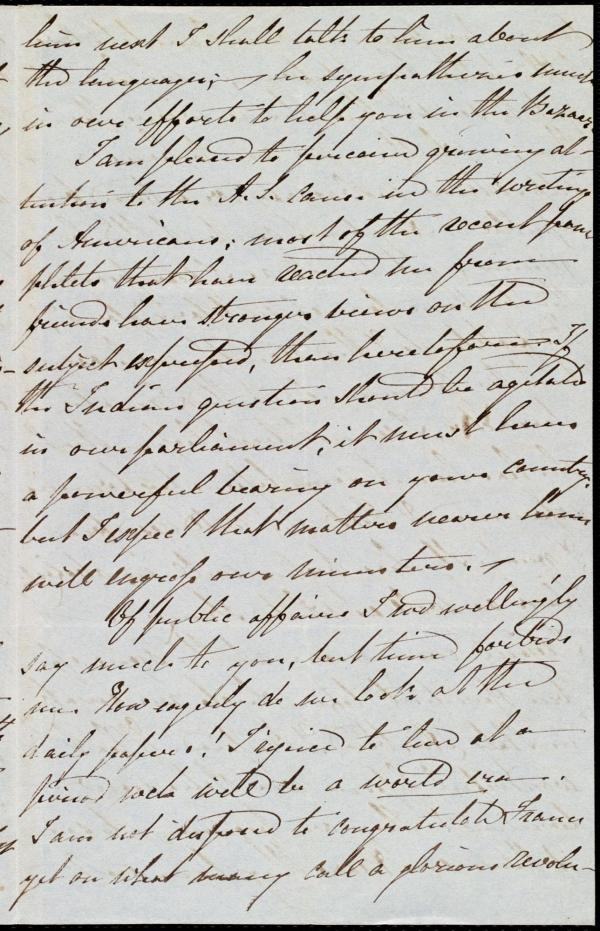 him next I shall talk to him about
the languages; – he sympathises much
in our efforts to help you in the Bazaar.
I am pleased to perceive growing at-
tention to the A.S. cause in the writings
of Americans; most of the recent pam
phlets that have reached me from
friends have stronger views on the
subject expressed, than heretofore. If
the Indian question should be agitated
in our parliament, it must have
a powerful bearing on your country.
but I expect that matters nearer home
will engross our ministers. –
Of public affairs I wod willingly
say much to you, but time forbids
me. How eagerly do we look at the
daily papers! I rejoice to live at a
period wch will be a world era.
I am not disposed to congratulate France
yet on what many call a glorious revolu-